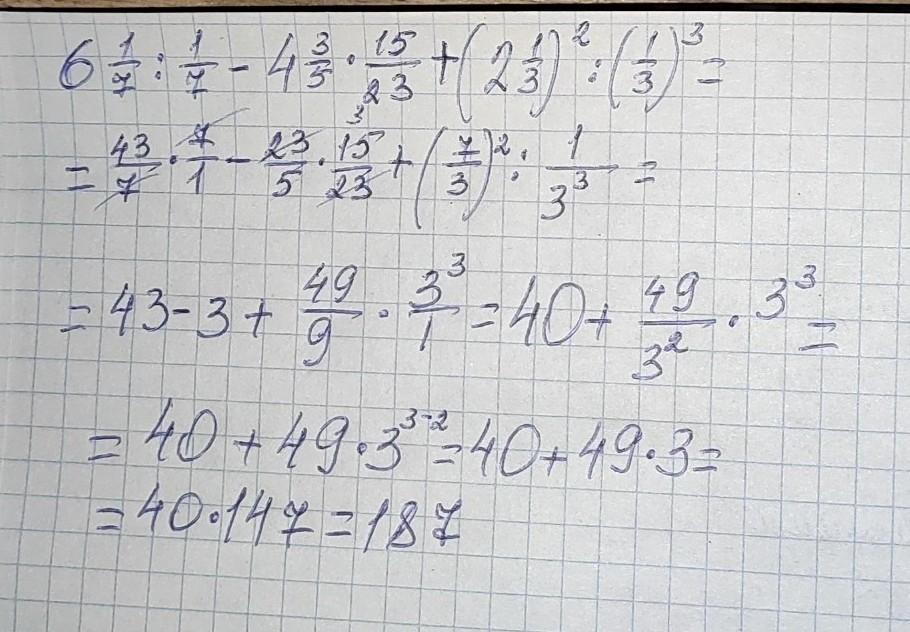 6 1/7 : 1/7 - 4 3/5 · 15/23 + (2 1/3)² : (1/3)³ =
= 43/7 · 7/1 - 23/5 · 15/23 ³ + (7/3)² : 1/3³ =
= 43 - 3 + 49/9 · 3³/1 = 40 + 49/3² · 3³ =
= 40 + 49 · 3³⁻² = 40 + 49 · 3 =
= 40 · 147 = 187